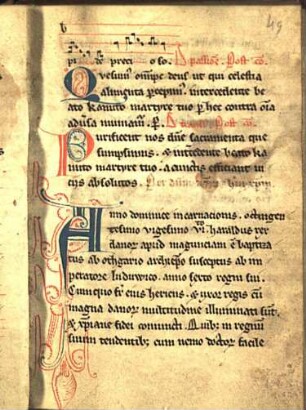 49
pide preci oso. 
Quesumus omps deus ut qui celestia
alimenta percepimus intercedente be
ato kanuto martyre tuo per hec contra omia
aduersa muniamur. P.
Purificent nos dne sacramenta que
sumpsimus & intercedente beato ka
nuto martyre tuo. a cunctis efficiant ui
ciis absolutos.
Anno dominice incarnacionis. octingen
tesimo uigesimo haraldus rex
danorum apud magunciam e baptiza
tus ab othgario archiepo susceptus ab im
peratore luduuico. anno sexto regni sui.
Cumque fr eius hericus. & uxor regis cum
magna danorum multitudine illuminati sunt.
& xpiane fidei coniuncti. Quib; in regnum
suum tendentib; cum nemo doctor facile